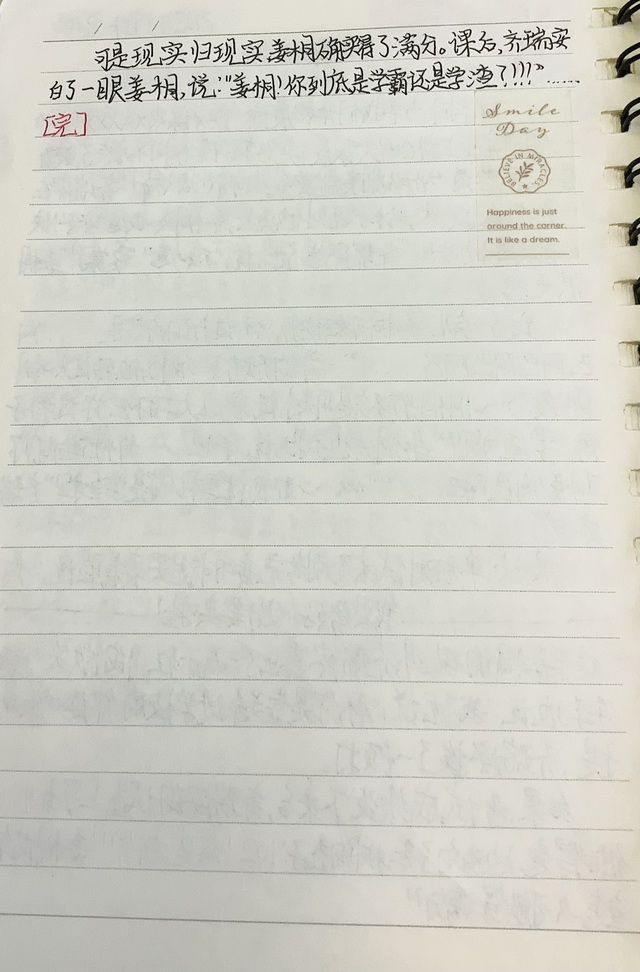 可是现实归现实,姜桐确实得了满分。课后,齐瑞安
白了一眼姜桐,说:"姜桐!你到底是学霸还是学渣?!!!"……
[完]
Smile
Day
BELIEVE IN MIRACLES
Happiness is just
around the corner.
It is like a dream.